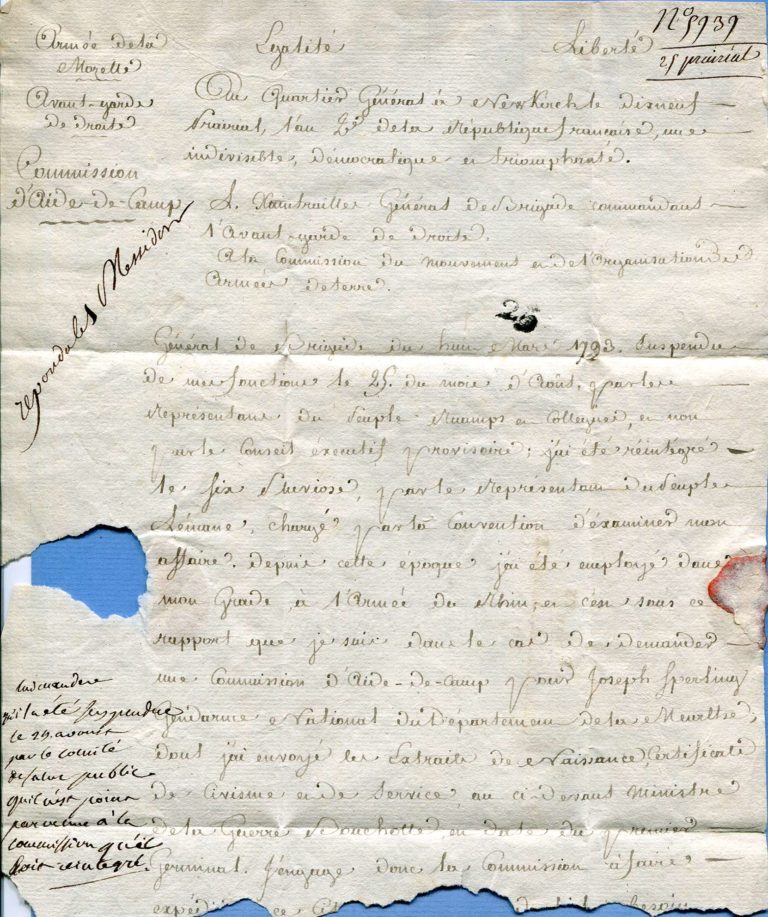 Armée de la
Mozelle
Egalité
Liberté
N° 5939
25 prairial
Avant-garde
de droite
Commission
d'Aide-de-Camp
Au Quartier Général à Newkirch le dixneuf
Prairial, l'an 2e de la République française, une
indivisible, démocratique et triomphante.
A. Xaintrailles Général de Brigade commandant
l'Avant-garde de droite.
A la Commission du mouvement et de l'Organisation des
Armées de terre.
repondu le Messidor
25
Général de Brigade du huit Mars 1793. Suspendu
de mes fonctions le 25. du mois d'Août, par les
Représentans du Peuple Ruamps et Collegues, et non
par le Conseil éxécutif provisoire; j'ai été réintégré
le six Pluviose, par le Représentant du Peuple
Lémane, chargé par la Convention d'éxaminer mon
affaire. depuis cette époque j'ai été employé dans
mon Grade, à l'Armée du Rhin, et c'est sous ce
rapport que je suis dans le cas de demander
une Commission d'Aide-de-Camp pour Joseph Sperling
Gendarme National du Département de la Meurthe,
dont j'ai envoyé les Extraits de Naissance, Certificats
de Civisme et de Service, au ci-devant Ministre
de la Guerre Bouchotte, en date du premier
Germinal. J'engage donc la Commission à faire
expédier ce
besoin
qu'il a été suspendu
le 29. aoust
par le comité
de salut public
qu'il n'est point
parvenu à la
commission qu'il
soit reintegré.